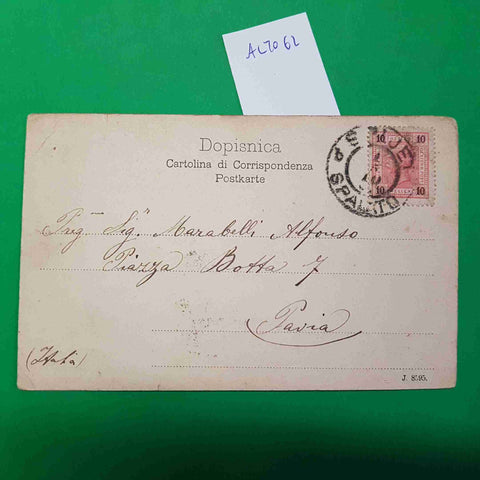 AL7062
Dopisnica
Cartolina di Corrispondenza
Postkarte
10 10
10 10
SPALATO
Preg. Sig. Marabelli Alfonso
Piazza Botta 7
Pavia
(Italia)
J. 8595.